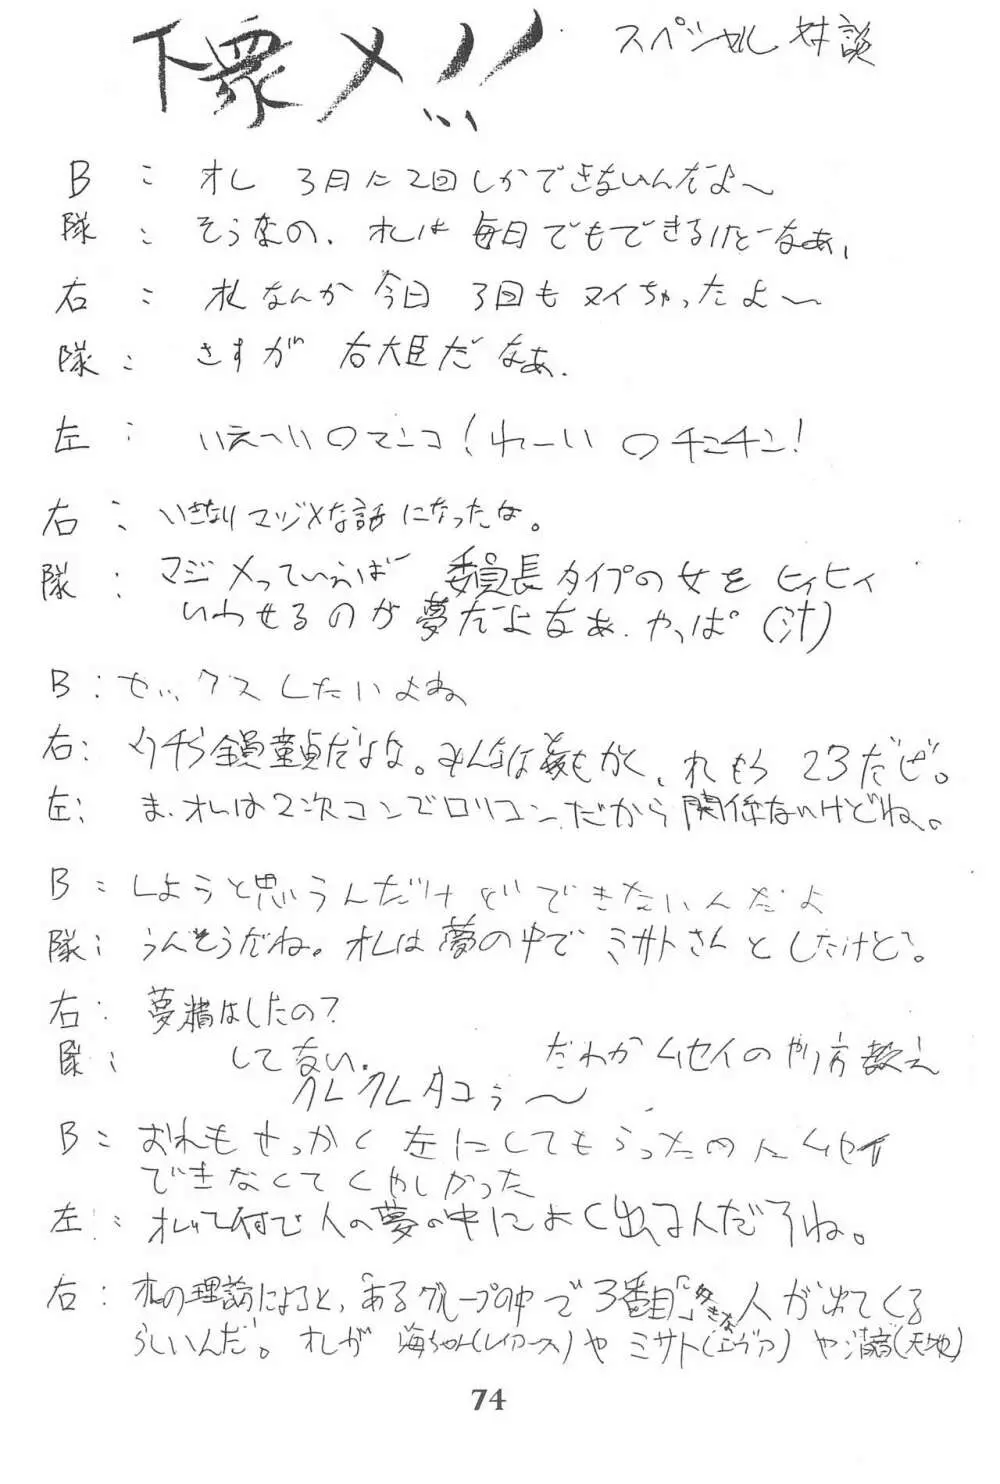 下衆メ!! スペシャル対談
B: オレ 3月に2回しかできないんだよ〜
隊: そうなの. オレは毎日でもできるけどーなぁ、
右: オレなんか今日 3回もヌイちゃったよ〜
隊: さすが 右大臣だ なぁ.
左: いえ〜いのマンコ! れーいのチンチン!
右: いきなりマジメな話になったな。
隊: マジメっていえば 委員長タイプの女をヒィヒィ
いわせるのが夢だよなぁ. やっぱ(汁)
B: セックスしたいよね
右: 全員童貞だよな。 23だぜ。
左: ま、オレは2次コンでロリコンだから関係ないけどね。
B: しようと思うんだけどできないんだよ
隊: うんそうだね。オレは夢の中でミサトさんとしたけど。
右: 夢精はしたの?
隊: してない. だれかムセイのやり方教え
クレクレタコラ〜
B: おれもせっかく左にしてもらったのにムセイ
できなくてくやしかった
左: オレって何で人の夢の中によく出るんだろね。
右: オレの理論によると、あるグループの中で3番目に好きな人が出てくる
らしいんだ。オレが海ちゃん(レイアース)やミサト(エヴァ)や清音(天地)
74